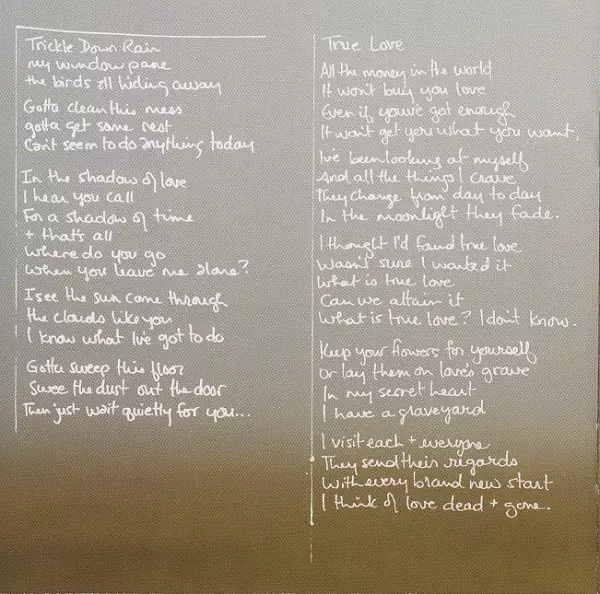 Trickle Down Rain
my window pane
the birds all hiding away
Gotta clean this mess
gotta get some rest
Can't seem to do anything today
In the shadow of love
I hear you call
For a shadow of time
+ that's all
Where do you go
When you leave me alone?
I see the sun come through
the clouds like you
I know what I've got to do
Gotta sweep this floor
Swee the dust out the door
Then just wait quietly for you...
True Love
All the money in the world
It won't buy you love
Even if you've got enough
It won't get you what you want.
I've been looking at myself
And all the things I crave
They change from day to day
In the moonlight they fade.
I thought I'd found true love
Wasn't sure I wanted it
What is true love
Can we attain it
What is true love? I don't know.
Keep your flowers for yourself
Or lay them on love's grave
In my secret heart
I have a graveyard
I visit each + everyone
They send their regards
With every brand new start
I think of love dead + gone.